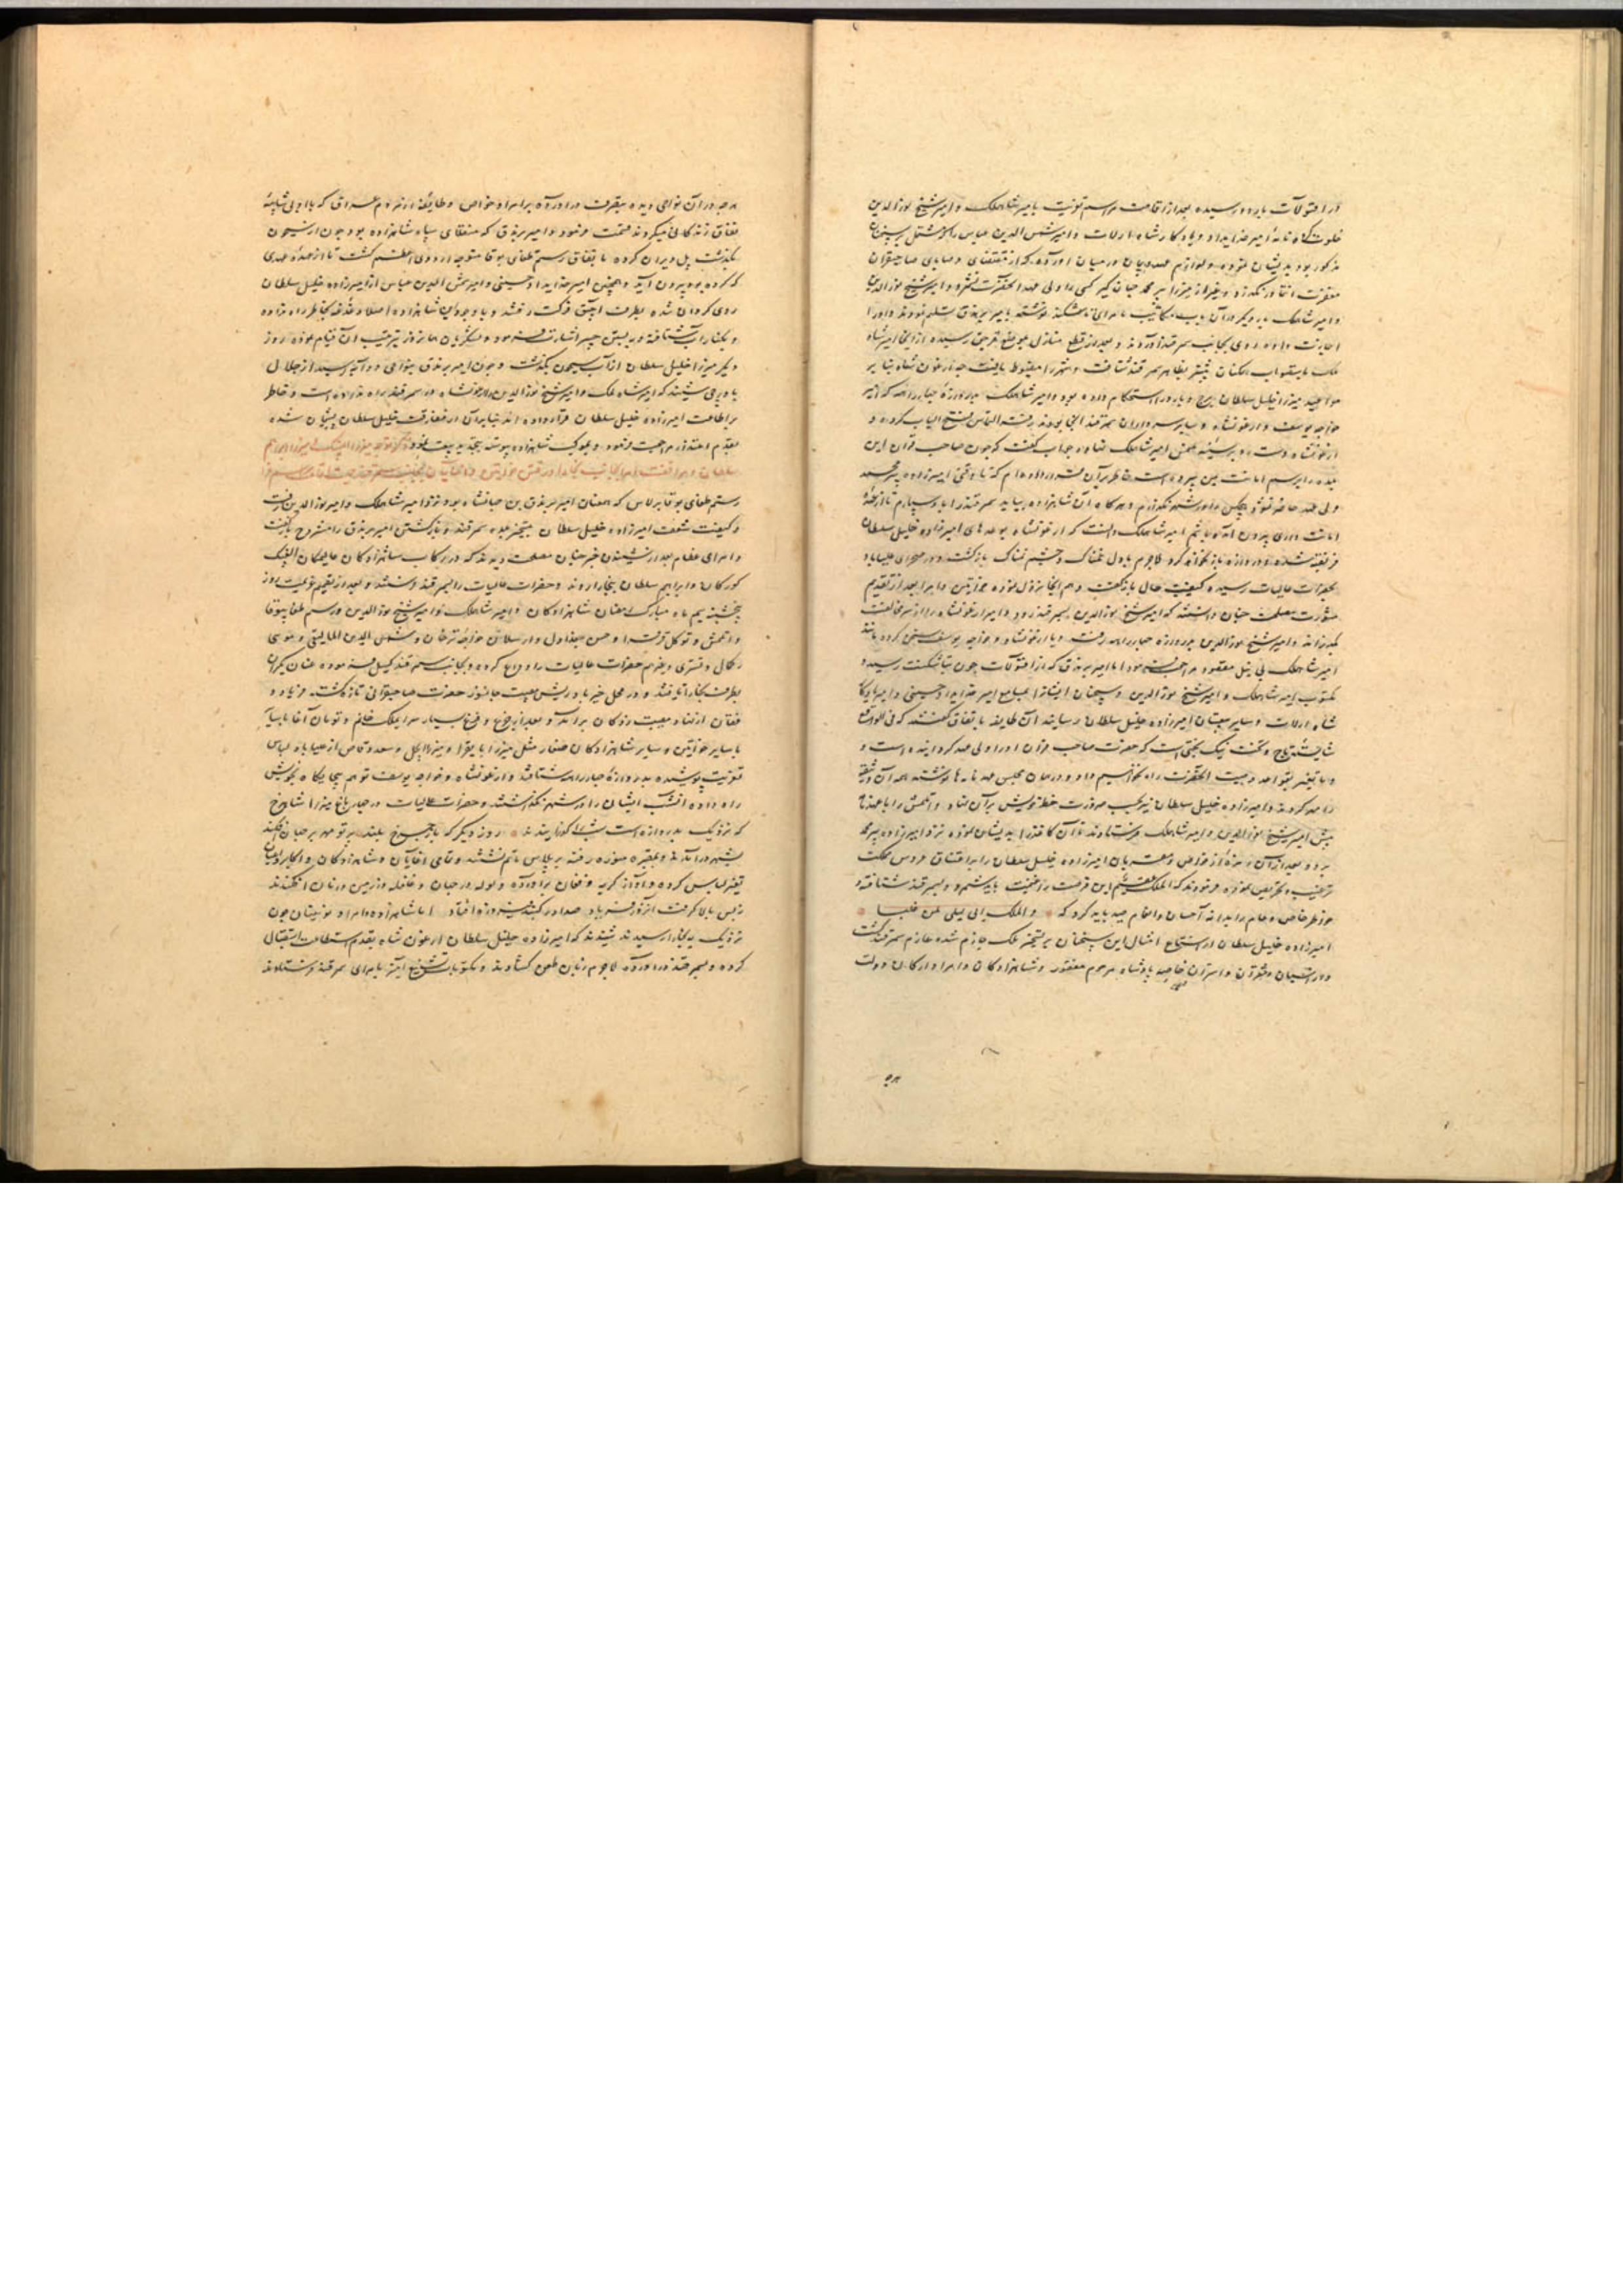 از اقتولات باردو رسیده بعد از اقامت مراسم تعزیت با میر شاهملک و امیر شیخ نورالدین
خلوت نامهٔ امیر خدایداد و یادگار شاه ارلات و امیر شمس الدین عباس را که مشتمل بر سخنان
مذکور بود بدیشان نموده و لوازم عهد و پیمان در میان آورده که از مقتضای وصایای صاحبقران
مغفرت انتما در نگذرند و بغیر از میرزا پیر محمد جهانگیر کسی را ولی عهد آنحضرت نشمرد و امیر شیخ نورالدین
و امیر شاهملک بار دیگر در آن باب مکاتیب بامرای تاشکند نوشته بامیر برندق تسلیم نمودند و او را
اجازت داده روی بجانب سمرقند آوردند و بعد از قطع منازل بموضع قریق رسیده از آنجا امیر شاه
ملک بایستصواب بیشتر بظاهر سمرقند شتافت و شهر را مضبوط یافت چه ارغون شاه بنا بر
مواعید میرزا خلیل سلطان برج و بارو را استحکام داده بود و امیر شاهملک بدروازهٔ چهارراهه که امیر
خواجه یوسف و ارغونشاه و سایر سرداران سمرقند آنجا بودند رفته التماس فتح الباب کرده و
ارغونشاه دست رد بر سینه ملتمس امیر شاهملک نهاده جواب گفت که چون صاحب قران این
بلده را برسم امانت بمن سپرده است خاطر بر آن قرار داده‌ام که تا وقتی امیرزاده پیر محمد
ولی عهد حاضر نشود هیچکس را در شهر نگذارم و هرگاه آن شاهزاده بیاید سمرقند را باو سپارم تا از عهدهٔ
امانت داری بیرون آمده باشم امیر شاهملک دانست که ارغونشاه بوعدهای امیرزاده خلیل سلطان
فریفته شده و دروازه باز نخواهد کرد لاجرم با دل غمناک و چشم نمناک بازگشت و در صحرای علیاباد
بحضرات عالیات رسیده کیفیت حال بازگفت و هم آنجا نزول نموده خواتین و امرا بعد از تقدیم
مشورت مصلحت چنان دانستند که امیر شیخ نورالدین بسمرقند رود و امیر ارغونشاه را از سر مخالفت
بگذراند و امیر شیخ نورالدین بدروازه چهارراهه رفت و با ارغونشاه و خواجه یوسف سخن کرده مانند
امیر شاهملک بی نیل مقصود مراجعت فرمود اما امیر برندق که از اقتولات چون بتاشکنت رسید و
مکتوب امیر شاهملک و امیر شیخ نورالدین و سخنان ایشانرا بمسامع امیر خدایداد حسینی و امیر یادگار
شاه ارلات و سایر متابعان امیرزاده خلیل سلطان رسانید آن طایفه باتفاق گفتند که فی الواقع
شایستهٔ تاج و تخت نیک بختی است که حضرت صاحب قران او را ولی عهد گردانیده است و
ما بتغییر قواعد وصیت آنحضرت راه نخواهیم داد و در همان مجلس عهدنامه‌ها نوشته همه آن وثیقه
را مهر کردند و امیرزاده خلیل سلطان نیز بحسب ضرورت خط خویش بر آن نهاد و اتلمش را با عهدنامه
پیش امیر شیخ نورالدین و امیر شاهملک فرستادند تا آن کاغذ را بدیشان نموده نزد امیرزاده پیر محمد
برد و بعد از آن زمرهٔ از خواص و مقربان امیرزاده خلیل سلطان را بر اعتناق عروس مملکت
ترغیب و تحریض نموده فرمودند که الملک عقیم این فرصت را غنیمت باید شمرد و بسمرقند شتافته و
خواطر خاص و عام را بدانه احسان و انعام صید باید کرد که و الملک ابی لیلی لمن غلبا
امیرزاده خلیل سلطان از استماع امثال این سخنان بر تسخیر ملک جازم شده عازم سمرقند گشت
و از اسپان و شتران و استران خاصه پادشاه مرحوم مغفور و شاهزادگان و امرا و ارکان دولت
هرچه
هرچه در آن نواحی دیده بتصرف درآورده بر امرا و خواص و طایفه از مردم عراق که با او بی شایبهٔ
نفاق زندگانی میکردند قسمت فرمود و امیر برندق که منقلای سپاه شاهزاده بود چون از سیحون
بگذشت پل ویران کرده باتفاق رستم طغای بوقا متوجه اردوی اعظم گشت تا از عهدهٔ عهدی
که کرده بود بیرون آید و همچنین امیر خدایداد حسینی و امیر شمس الدین عباس از امیرزاده خلیل سلطان
روی گردان شده بطرف اچیق فرکت رفتند و با وجود این شاهزاده اصلا دغدغه بخاطر راه نداده
و بکنار آب شتافته و به بستن جسر اشارت فرمود و لشکریان همانروز بترتیب آن قیام نموده روز
دیگر میرزا خلیل سلطان از آب سیحون بگذشت و چون امیر برندق بنواحی دورآنه رسید از جلال
باورچی شنید که امیر شاه ملک و امیر شیخ نورالدین را ارغونشاه در سمرقند راه نداده است و خاطر
بر اطاعت امیرزاده خلیل سلطان قرار داده‌اند بنابر آن از مفارقت خلیل سلطان پشیمان شده
بقدم اعتذار مراجعت فرمود و بموکب شاهزاده پیوسته تجدید بیعت نمود ذکر توجه میرزا الغ بیک و میرزا ابراهیم
سلطان و مرافقت امرا بجانب بخارا و رفتن خواتین و آغایان بجانب سمرقند
رستم طغای بوقا برلاس که همعنان امیر برندق بن جهانشاه بود نزد امیر شاهملک و امیر نورالدین رفت
و کیفیت شعف امیرزاده خلیل سلطان بتسخیر بلده سمرقند و بازگشتن امیر برندق را مشروح بازگفت
و امرای عظام بعد از شنیدن خبر چنان مصلحت دیدند که در رکاب شاهزادگان عالیمکان الغ بیک
کورکان و ابراهیم سلطان ببخارا روند و حضرات عالیات را بسمرقند فرستند و بعد از تقدیم مشورت روز
پنجشنبه نیم ماه مبارک رمضان شاهزادگان و امیر شاهملک و امیر شیخ نورالدین و رستم طغای بوقا
و اتلمش و توکل قرقرا و حسن جغداول و ارسلان خواجه ترخان و شمس الدین المالیقی و موسی
رکمال و دفتری و غیرهم حضرات عالیات را وداع کرده و بجانب سمرقند گسیل فرموده عنان یکران
بطرف بخارا تافتند و در محل خیرباد ریش مصیبت جانسوز حضرت صاحبقرانی تازه گشت فریاد و
فغان از نهاد مصیبت زدگان برآمد و بعد از جزع و فزع بسیار سرای ملک خانم و تومان آغا
با سایر خواتین و سایر شاهزادگان صغار مثل میرزا بایقرا و میرزا ایجل و سعد وقاص از علیاباد لباس
تعزیت پوشیده بدروازهٔ چهارراهه شتافتند و ارغونشاه و خواجه یوسف توهم بیجایگاه بخویش
راه داده آنشب ایشان را در شهر نگذاشتند و حضرات عالیات در چهارباغ میرزا شاهرخ
که نزدیک بدروازه است شب گذرانیدند روز دیگر که از چرخ بلند پرتو مهر بر جهان فکند
بشهر درآمدند و بمقبره منوره رفته بر پلاس ماتم نشستند و تمامی آغایان و شاهزادگان و اکابر و اعیان
تغییر لباس کرده و آواز گریه و فغان برآورده و ولوله در جهان و غلغله در زمین و زمان افکندند
ز بس بالا گرفت آنروز فریاد صدا در گنبد فیروزه افتاد اما شاهزاده و امرا و نوئینان چون
نزدیک ببخارا رسیدند شنیدند که امیرزاده خلیل سلطان ارغون شاه بقدم استطاعت استقبالی
کرده و بسمرقند درآورده لاجرم زبان طعن گشادند و مکتوبات تشنیع آمیز بامرای سمرقند فرستادند